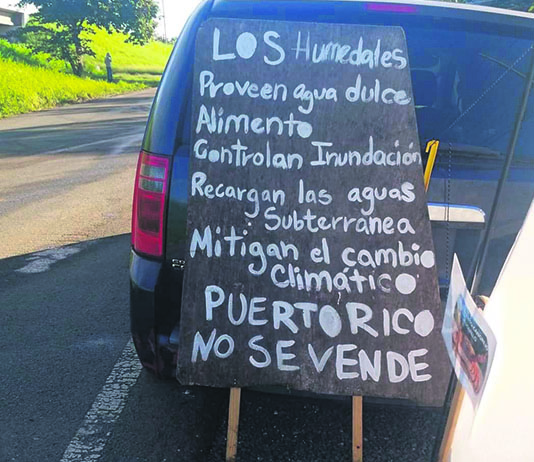 LOS Humedales
Proveen agua dulce
Alimento
Controlan Inundación
Recargan las aguas
Subterranea
Mitigan el cambio
Climático
PUERTO RICO
NO SE VENDE